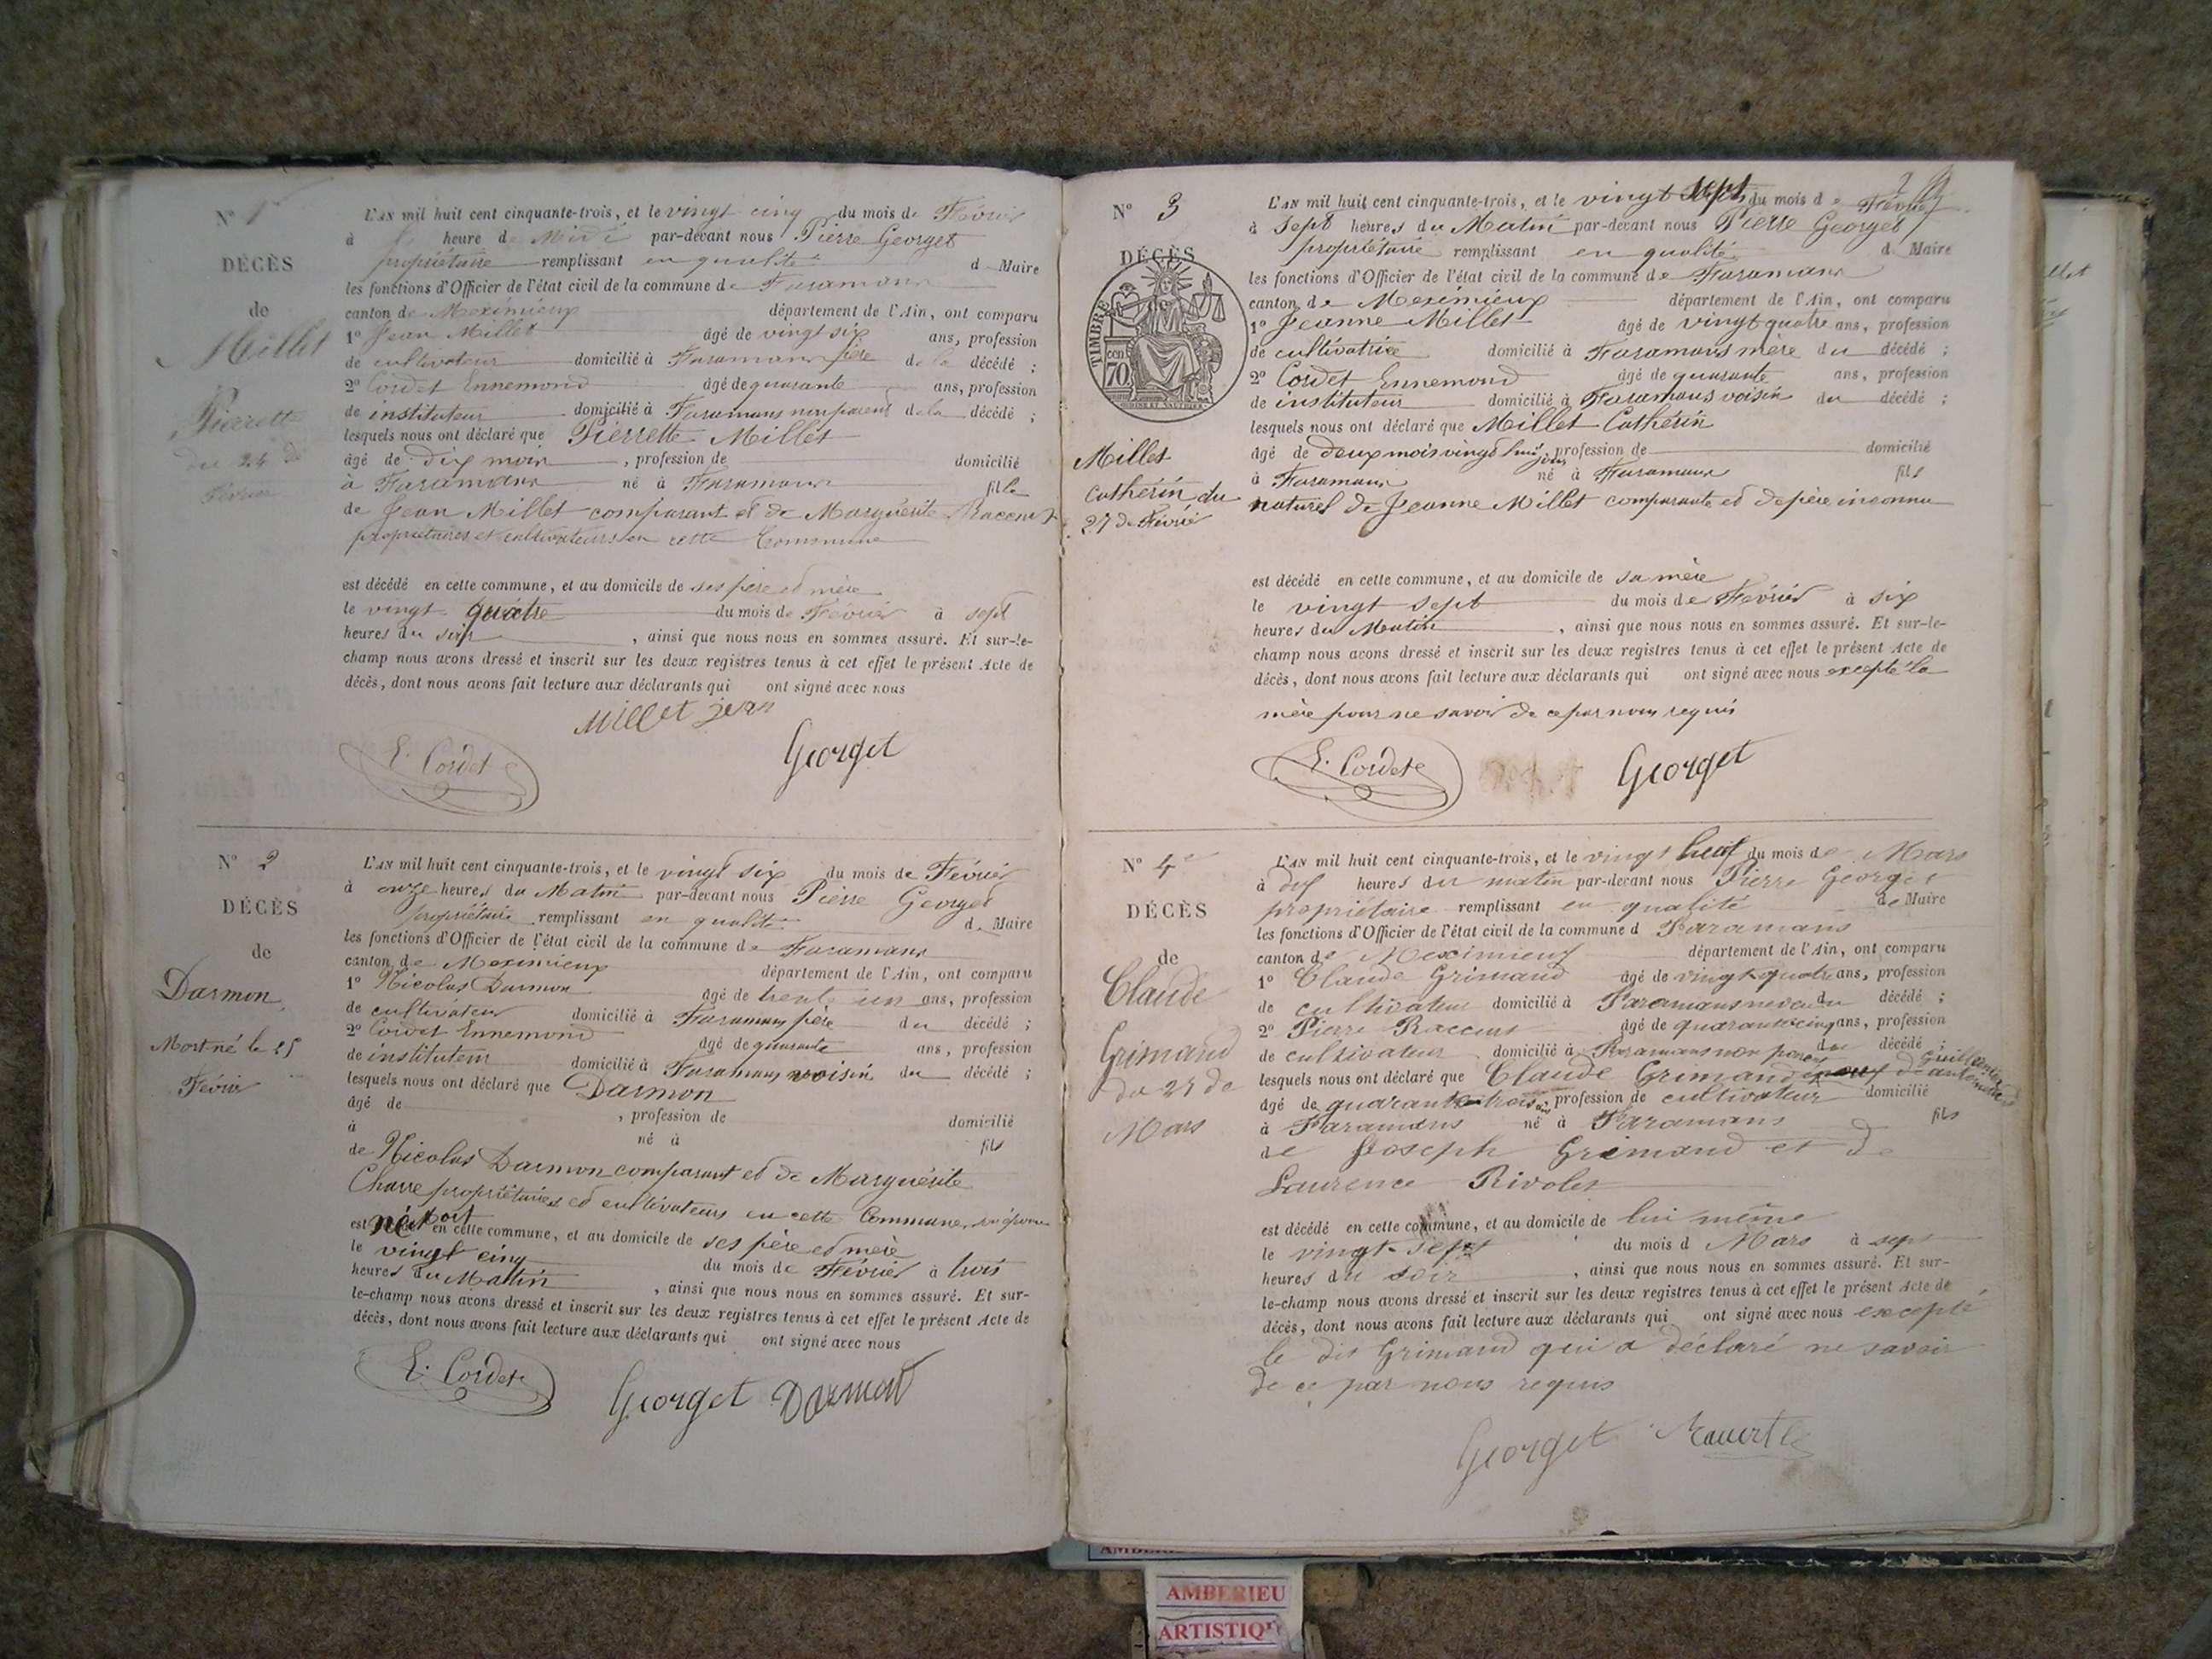 N° 1
DÉCÈS
de
Millet
Pierrette
du 24 de
Février
L'AN mil huit cent cinquante-trois, et le vingt cinq du mois de Février
à heure de Midi par-devant nous Pierre Georget
propriétaire remplissant en qualité d Maire
les fonctions d'Officier de l'état civil de la commune de Faramans
canton de Meximieux département de l'Ain, ont comparu
1° Jean Millet âgé de vingt six ans, profession
de cultivateur domicilié à Faramans père de la décédé ;
2° Cordet Ennemond âgé de quarante ans, profession
de instituteur domicilié à Faramans non parent de la décédé ;
lesquels nous ont déclaré que Pierrette Millet
âgé de dix mois , profession de domicilié
à Faramans né à Faramans fille
de Jean Millet comparant et de Marguerite Raccurt
propriétaires et cultivateurs en cette Commune
est décédé en cette commune, et au domicile de ses père et mère
le vingt quatre du mois de Février à sept
heures du soir , ainsi que nous nous en sommes assuré. Et sur-le-
champ nous avons dressé et inscrit sur les deux registres tenus à cet effet le présent Acte de
décès, dont nous avons fait lecture aux déclarants qui ont signé avec nous
Millet jean
E. Cordet Georget
N° 2
DÉCÈS
de
Darmon
Mort né le 25
Février
L'AN mil huit cent cinquante-trois, et le vingt six du mois de Février
à onze heures du Matin par-devant nous Pierre Georget
propriétaire remplissant en qualité d. Maire
les fonctions d'Officier de l'état civil de la commune de Faramans
canton de Meximieux département de l'Ain, ont comparu
1° Nicolas Darmon âgé de trente un ans, profession
de cultivateur domicilié à Faramans père du décédé ;
2° Cordet Ennemond âgé de quarante ans, profession
de instituteur domicilié à Faramans voisin du décédé ;
lesquels nous ont déclaré que Darmon
âgé de , profession de domicilié
à né à fils
de Nicolas Darmon comparant et de Marguérite
Charre propriétaires et cultivateurs en cette Commune, son épouse
est né mort en cette commune, et au domicile de ses père et mère
le vingt cinq du mois de Février à trois
heures du Matin , ainsi que nous nous en sommes assuré. Et sur-
le-champ nous avons dressé et inscrit sur les deux registres tenus à cet effet le présent Acte de
décès, dont nous avons fait lecture aux déclarants qui ont signé avec nous
E. Cordet Georget Darmon
N° 3
DÉCÈS
TIMBRE
cen
70
Millet
Cathérin du
27 de Février
L'AN mil huit cent cinquante-trois, et le vingt sept du mois de Février
à Sept heures du Matin par-devant nous Pierre Georget
propriétaire remplissant en qualité d Maire
les fonctions d'Officier de l'état civil de la commune de Faramans
canton de Meximieux département de l'Ain, ont comparu
1° Jeanne Millet âgé de vingt quatre ans, profession
de cultivatrice domicilié à Faramans mère du décédé ;
2° Cordet Ennemond âgé de quarante ans, profession
de instituteur domicilié à Faramans voisin du décédé ;
lesquels nous ont déclaré que Millet Cathérin
âgé de deux mois vingt huit jours, profession de domicilié
à Faramans né à Faramans fils
naturel de Jeanne Millet comparante et de père inconnu
est décédé en cette commune, et au domicile de sa mère
le vingt sept du mois de Février à six
heures du Matin , ainsi que nous nous en sommes assuré. Et sur-le-
champ nous avons dressé et inscrit sur les deux registres tenus à cet effet le présent Acte de
décès, dont nous avons fait lecture aux déclarants qui ont signé avec nous excepté la
mère pour ne savoir de ce par nous requis
E. Cordet Georget
N° 4
DÉCÈS
de
Claude
Grimand
du 27 de
Mars
L'AN mil huit cent cinquante-trois, et le vingt huit du mois de Mars
à dix heures du matin par-devant nous Pierre Georget
propriétaire remplissant en qualité de Maire
les fonctions d'Officier de l'état civil de la commune d Faramans
canton de Meximieux département de l'Ain, ont comparu
1° Claude Grimand âgé de vingt quatre ans, profession
de cultivateur domicilié à Faramans neveu du décédé ;
2° Pierre Raccurt âgé de quarante cinq ans, profession
de cultivateur domicilié à Faramans non parent du décédé ;
lesquels nous ont déclaré que Claude Grimand
âgé de quarante trois ans, profession de cultivateur domicilié
à Faramans né à Faramans fils
de Joseph Grimand et de
Laurence Rivolet
est décédé en cette commune, et au domicile de lui même
le vingt-sept du mois d Mars à sept
heures du soir , ainsi que nous nous en sommes assuré. Et sur-
le-champ nous avons dressé et inscrit sur les deux registres tenus à cet effet le présent Acte de
décès, dont nous avons fait lecture aux déclarants qui ont signé avec nous excepté
le dit Grimand qui a déclaré ne savoir
de ce par nous requis
Georget
AMBERIEU
ARTISTIQ